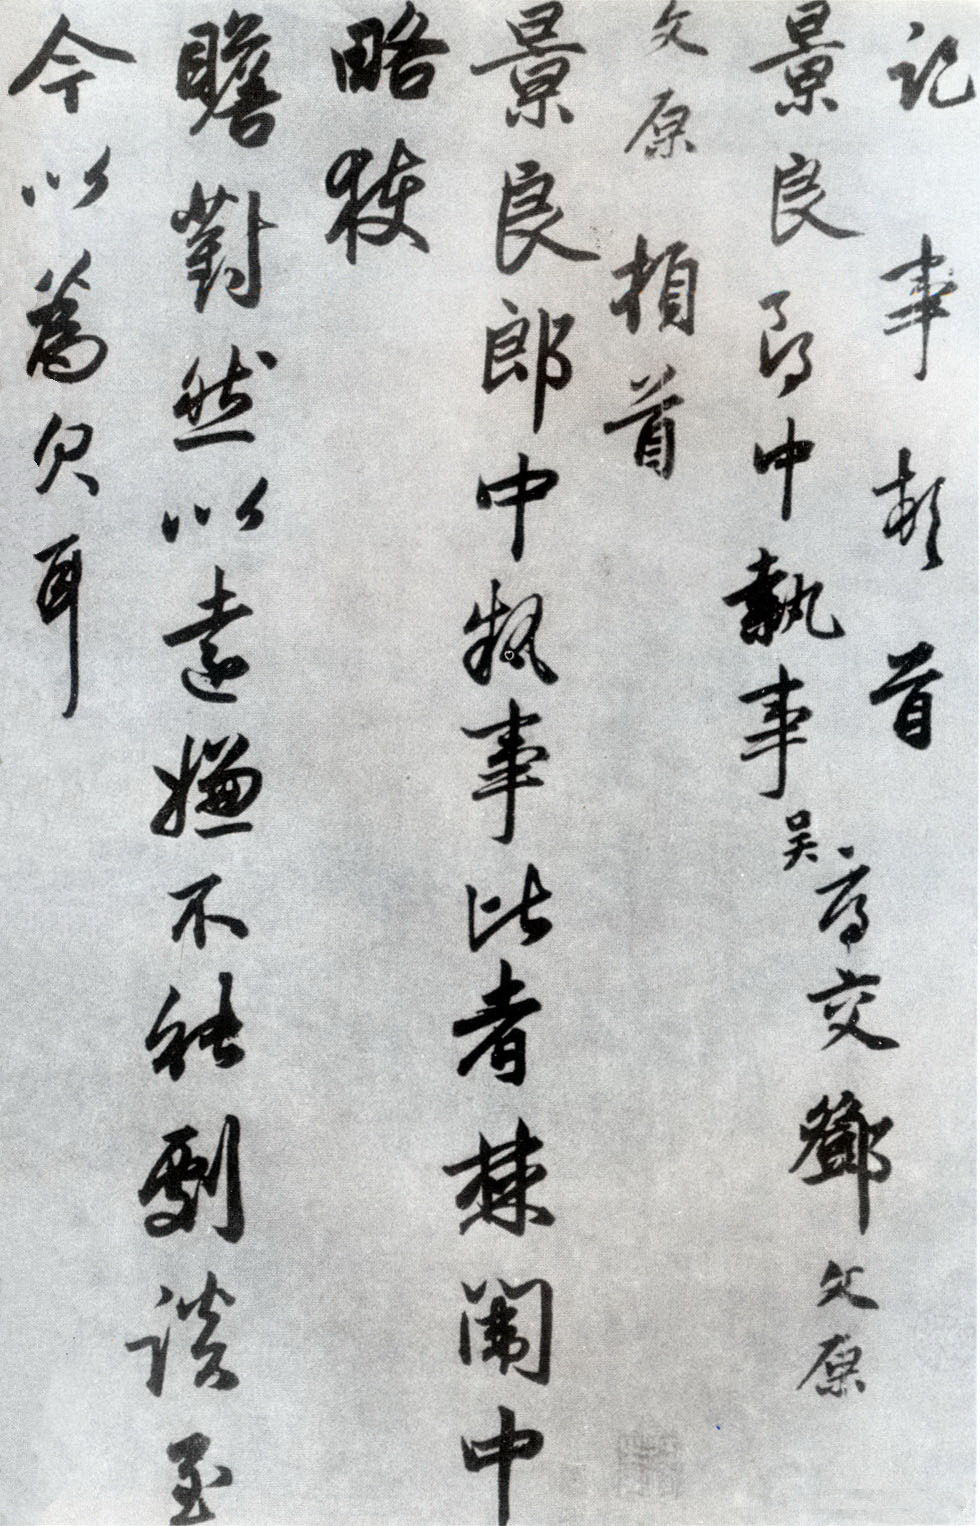 記事頓首
景良郎中執事
吴交鄧文原
文原頓首
景良郎中執事比者棘闈中
略獲
瞻對然以遠嫌不能劇談至
今以為欠耳